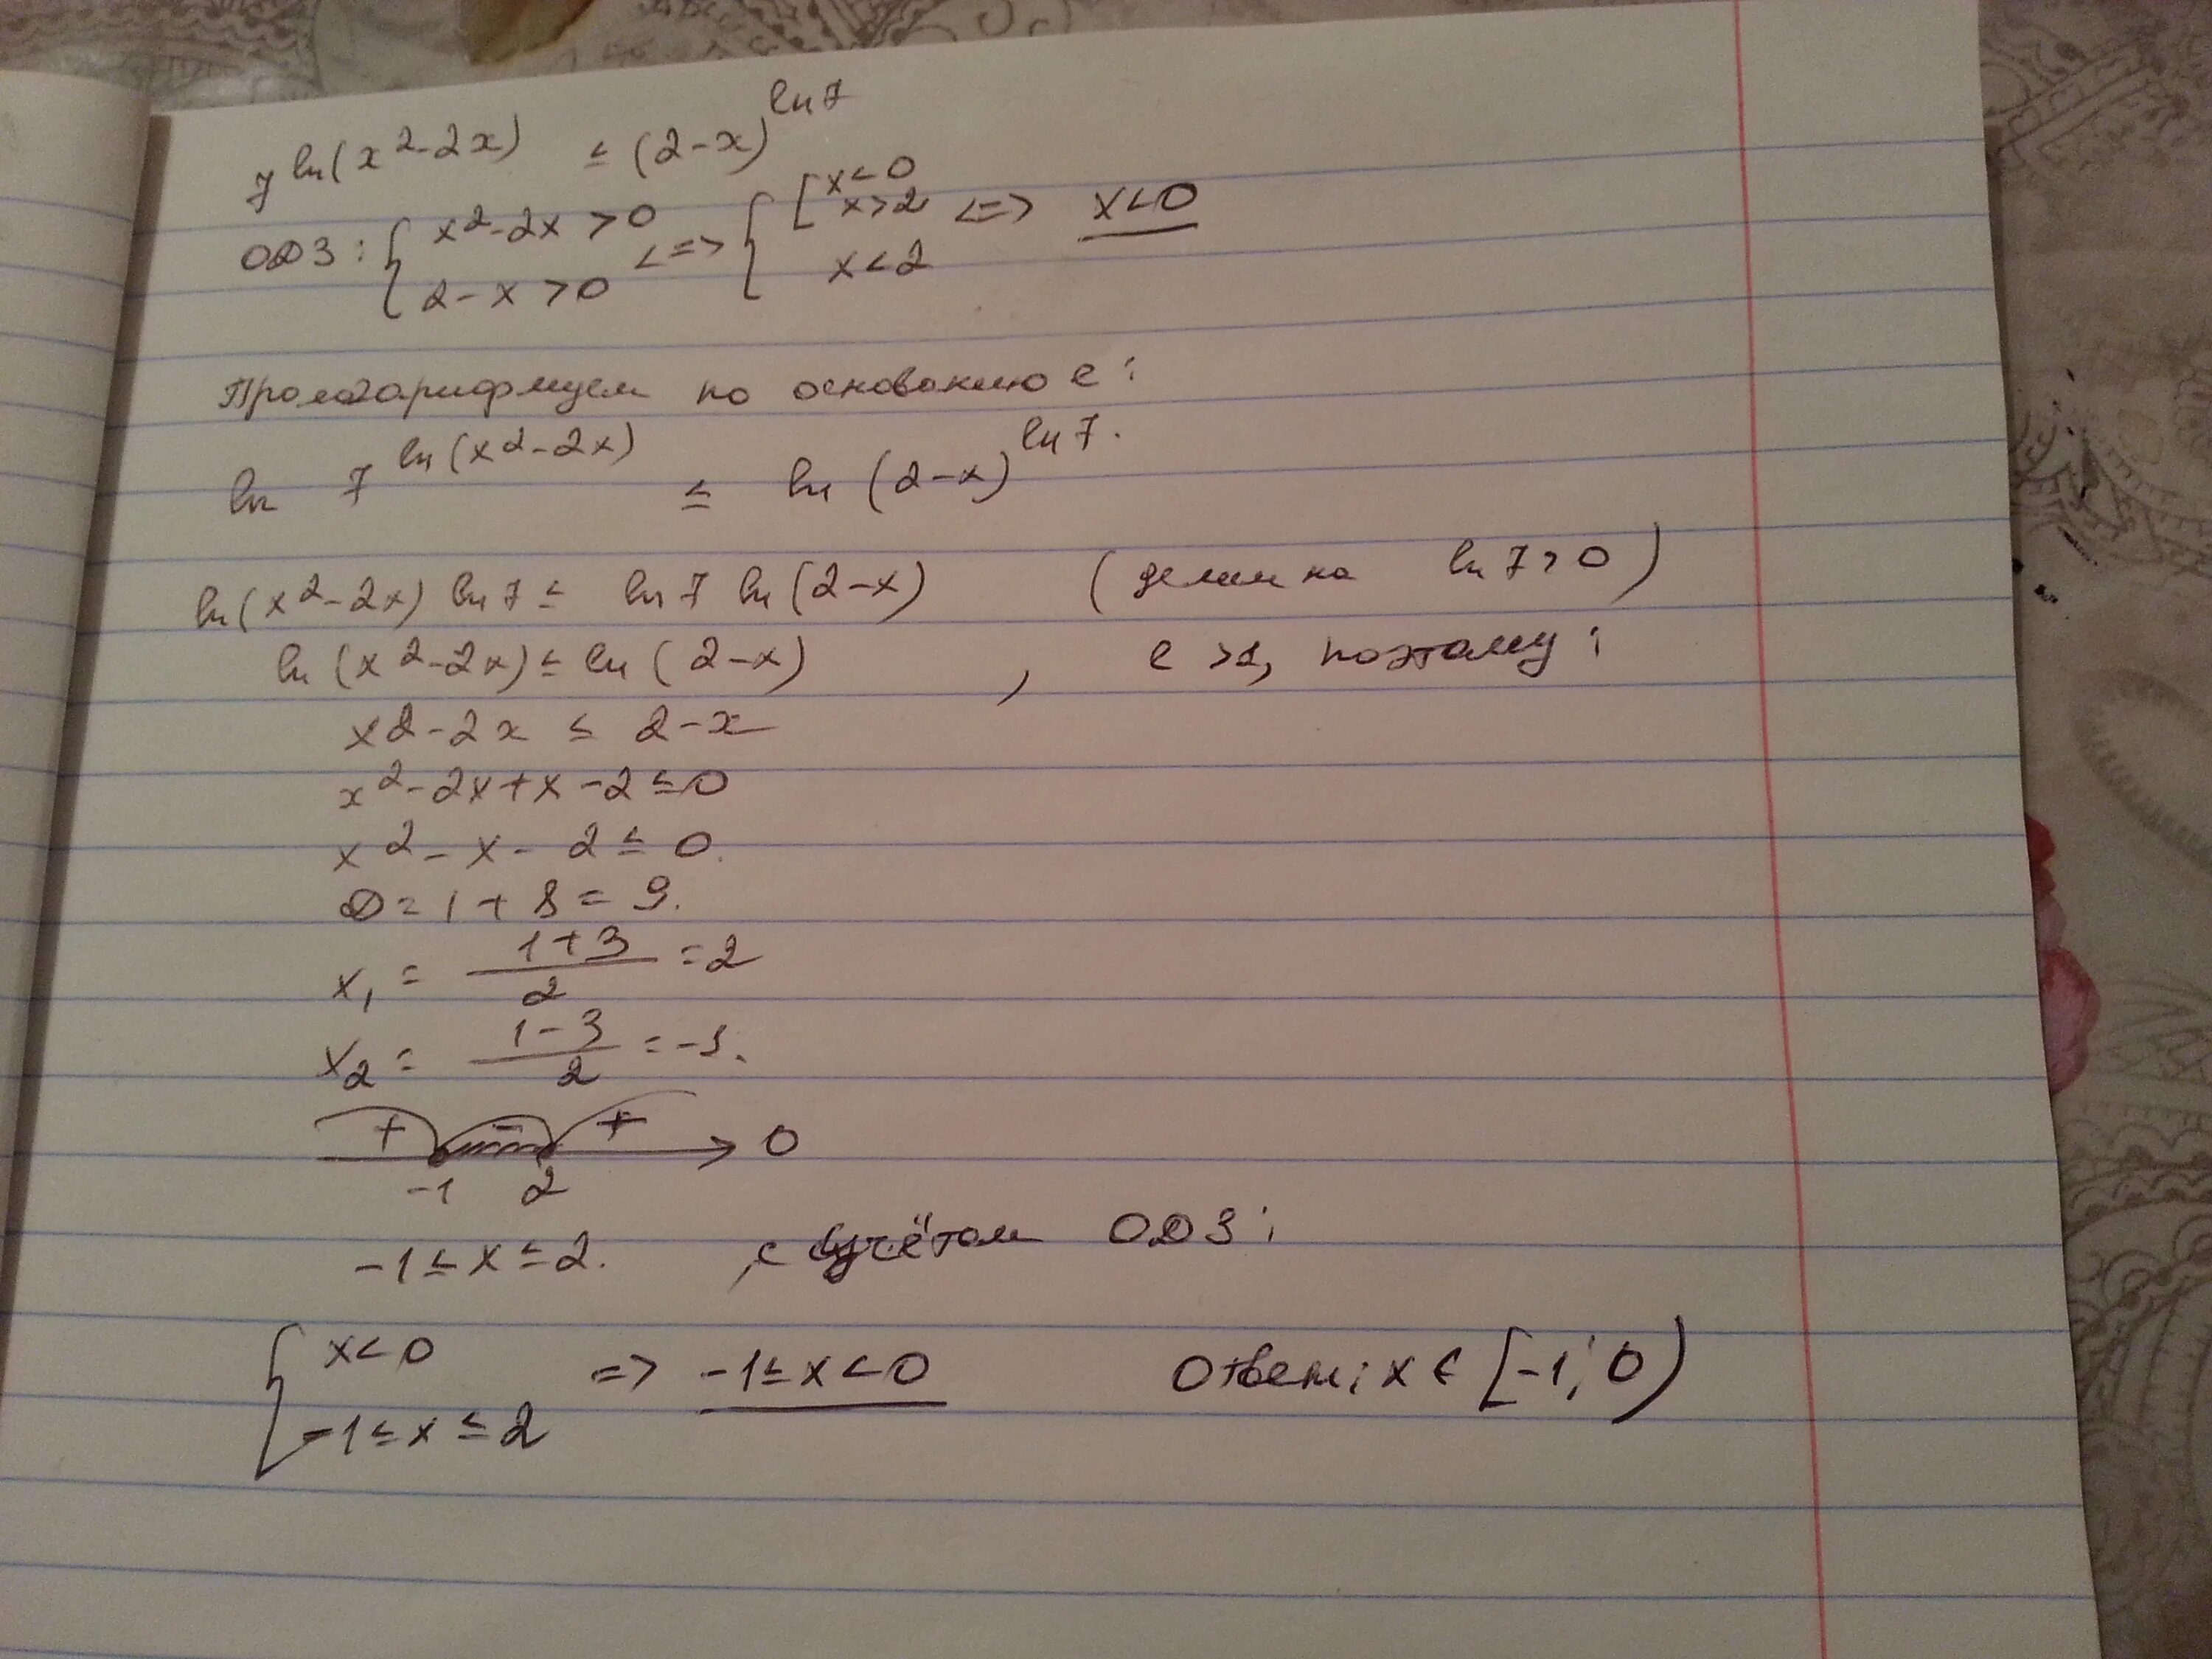 7^ln(x²-2x) ≤ (2-x)^ln7
ОДЗ: { x²-2x>0 2-x>0 <=> { [ x<0 x>2 x<2 <=> x<0
Прологарифмуем по основанию e:
ln 7^ln(x²-2x) ≤ ln (2-x)^ln7.
ln(x²-2x) ln7 ≤ ln7 ln(2-x) (делим на ln7>0)
ln(x²-2x) ≤ ln(2-x) , e>1, поэтому:
x²-2x ≤ 2-x
x²-2x+x-2≤0
x²-x-2≤0.
D=1+8=9.
x₁ = (1+3)/2 = 2
x₂ = (1-3)/2 = -1.
+ - + 0
-1 2
-1≤x≤2. , с учётом ОДЗ:
{ x<0 -1≤x≤2 => -1≤x<0 Ответ: x∈[-1;0)